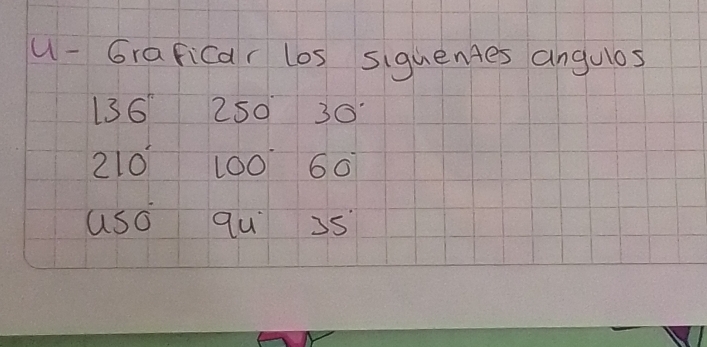 4- Graficar los siguientes angulos
136° 250° 30°
210° 100° 60°
450° 94° 35°